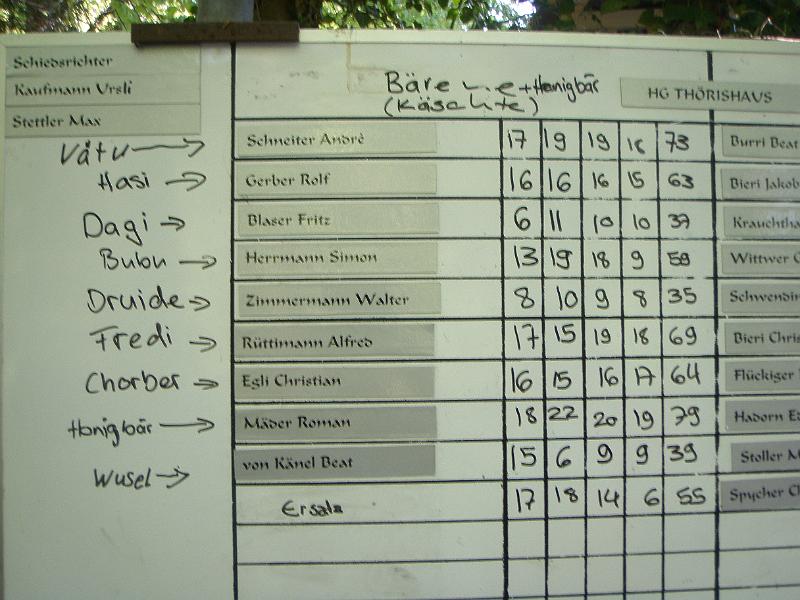 Schiedsrichter
Kaufmann Ursli
Stettler Max
+ Honigbär
HG THÖRISHAUS
Vätu → Schneiter Andrè 17 19 19 18 73 Burri Beat
Hasi → Gerber Rolf 16 16 16 15 63 Bieri Jakob
Dagi → Blaser Fritz 6 11 10 10 37 Krauchtha
Bubu → Herrmann Simon 13 19 18 9 59 Wittwer
Druide → Zimmermann Walter 8 10 9 8 35 Schwendi
Fredi → Rüttimann Alfred 17 15 19 18 69 Bieri Chris
Chorber → Egli Christian 16 15 16 17 64 Flückiger
Honigbär → Mäder Roman 18 22 20 19 79 Hadorn
Wusel → von Känel Beat 15 6 9 9 39 Stoller M
Ersatz 17 18 14 6 55 Spycher